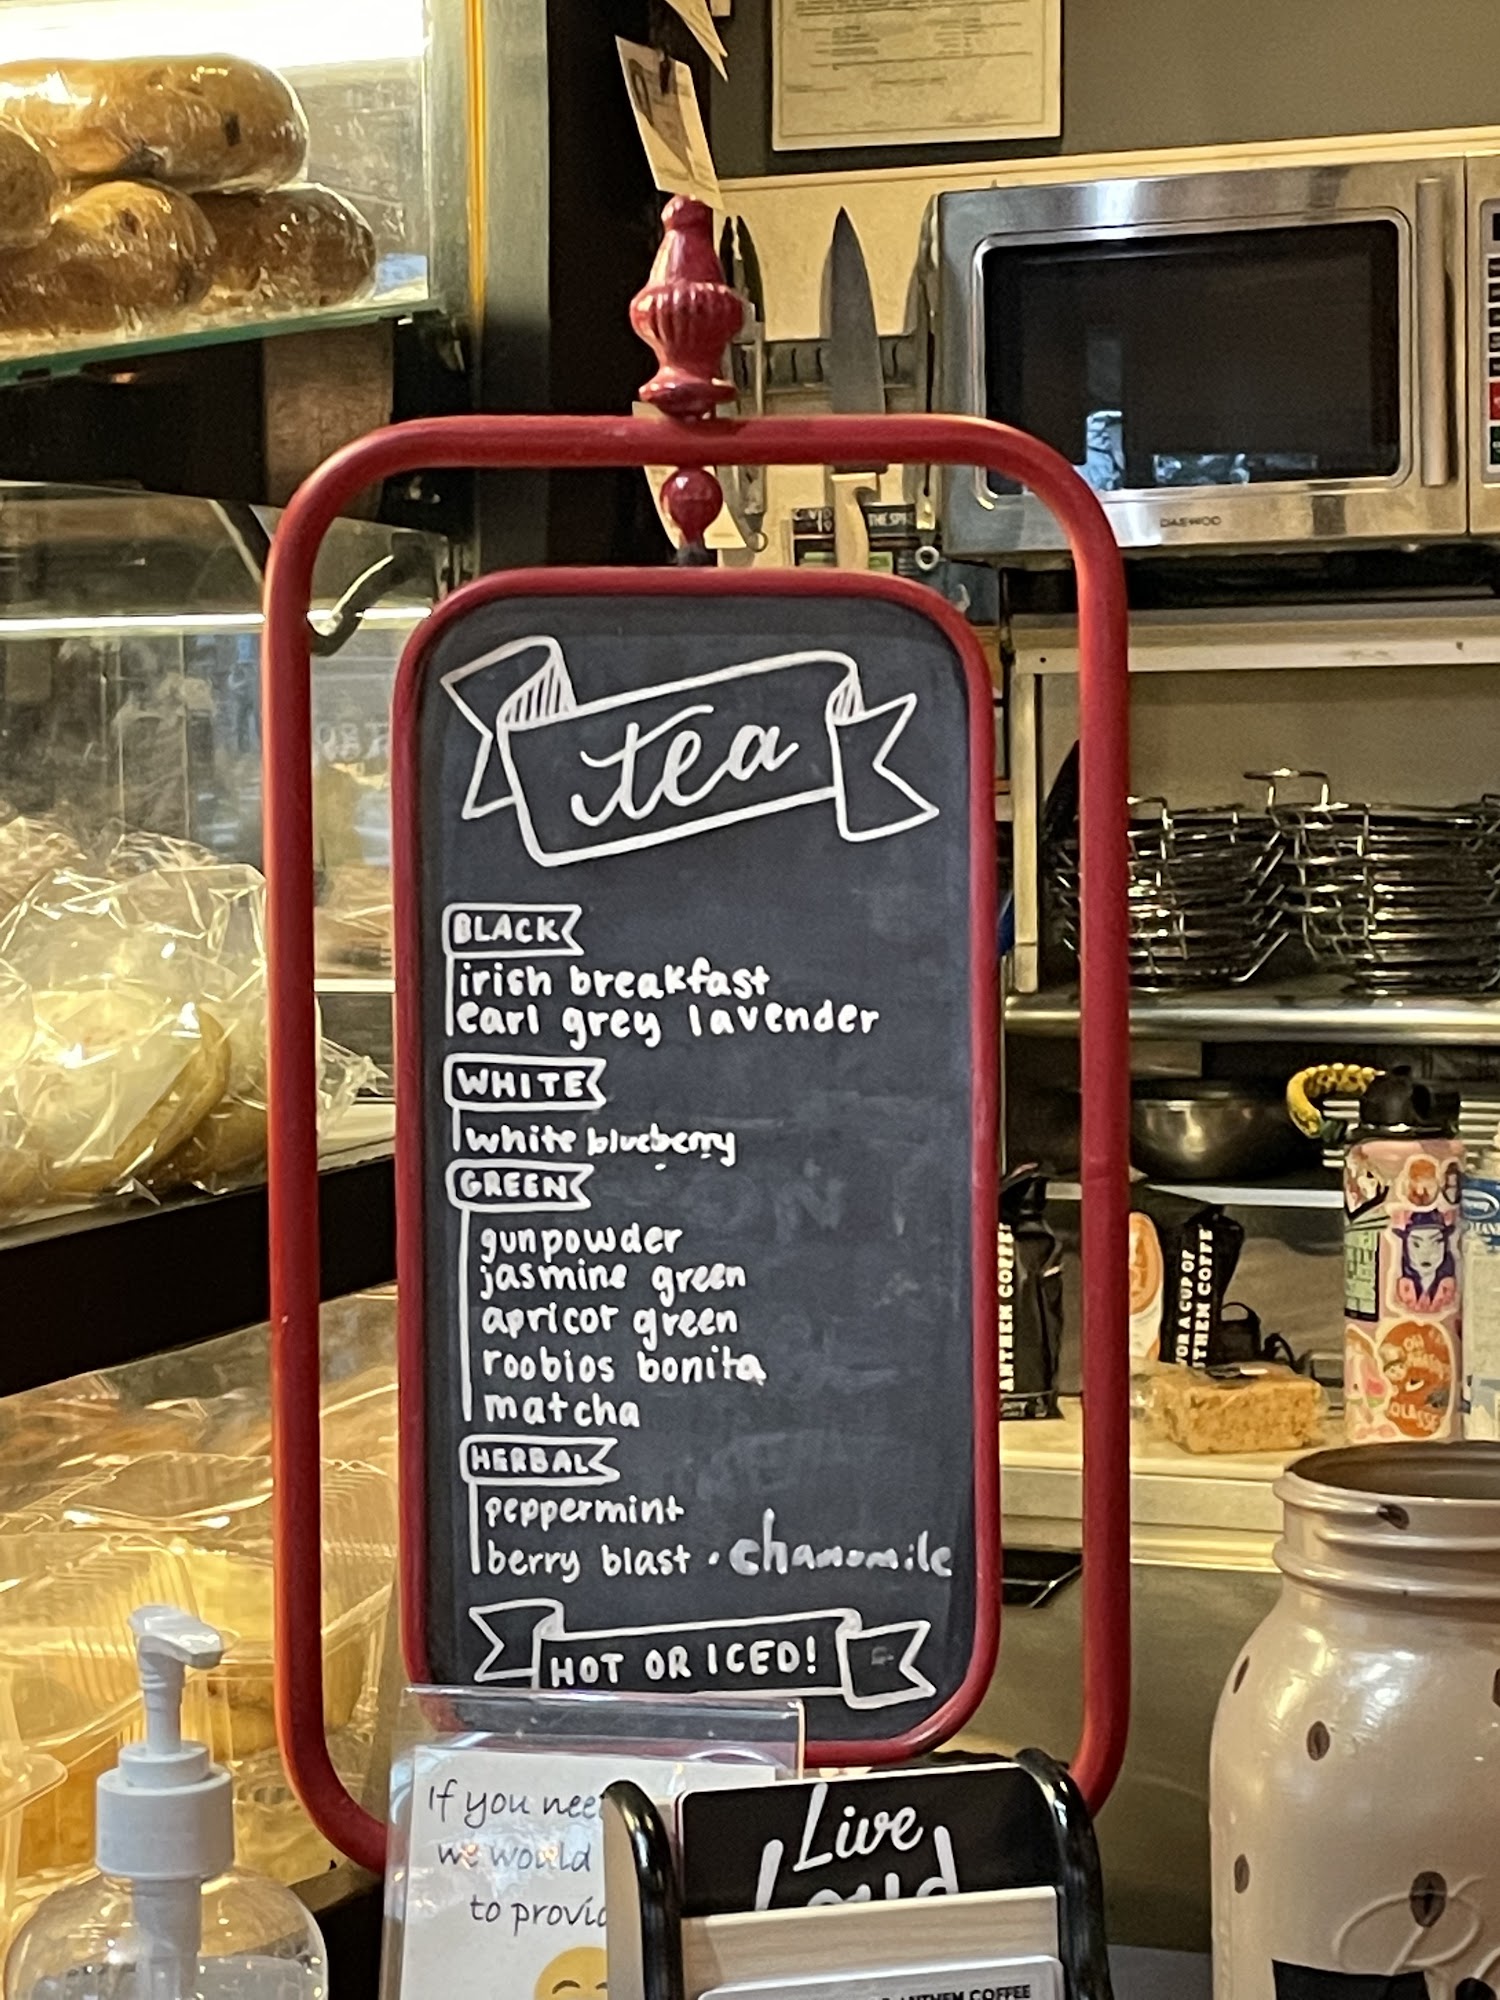 DAEWOO
THE SPI
tea
BLACK
irish breakfast
earl grey lavender
WHITE
white blueberry
GREEN
gunpowder
jasmine green
apricot green
roobios bonita
matcha
HERBAL
peppermint
berry blast • chamomile
HOT OR ICED!
ANTHEM COFFEE
FOR A CUP OF
ANTHEM COFFE
If you nee
we would
to provid
Live
Loud
ANTHEM COFFEE